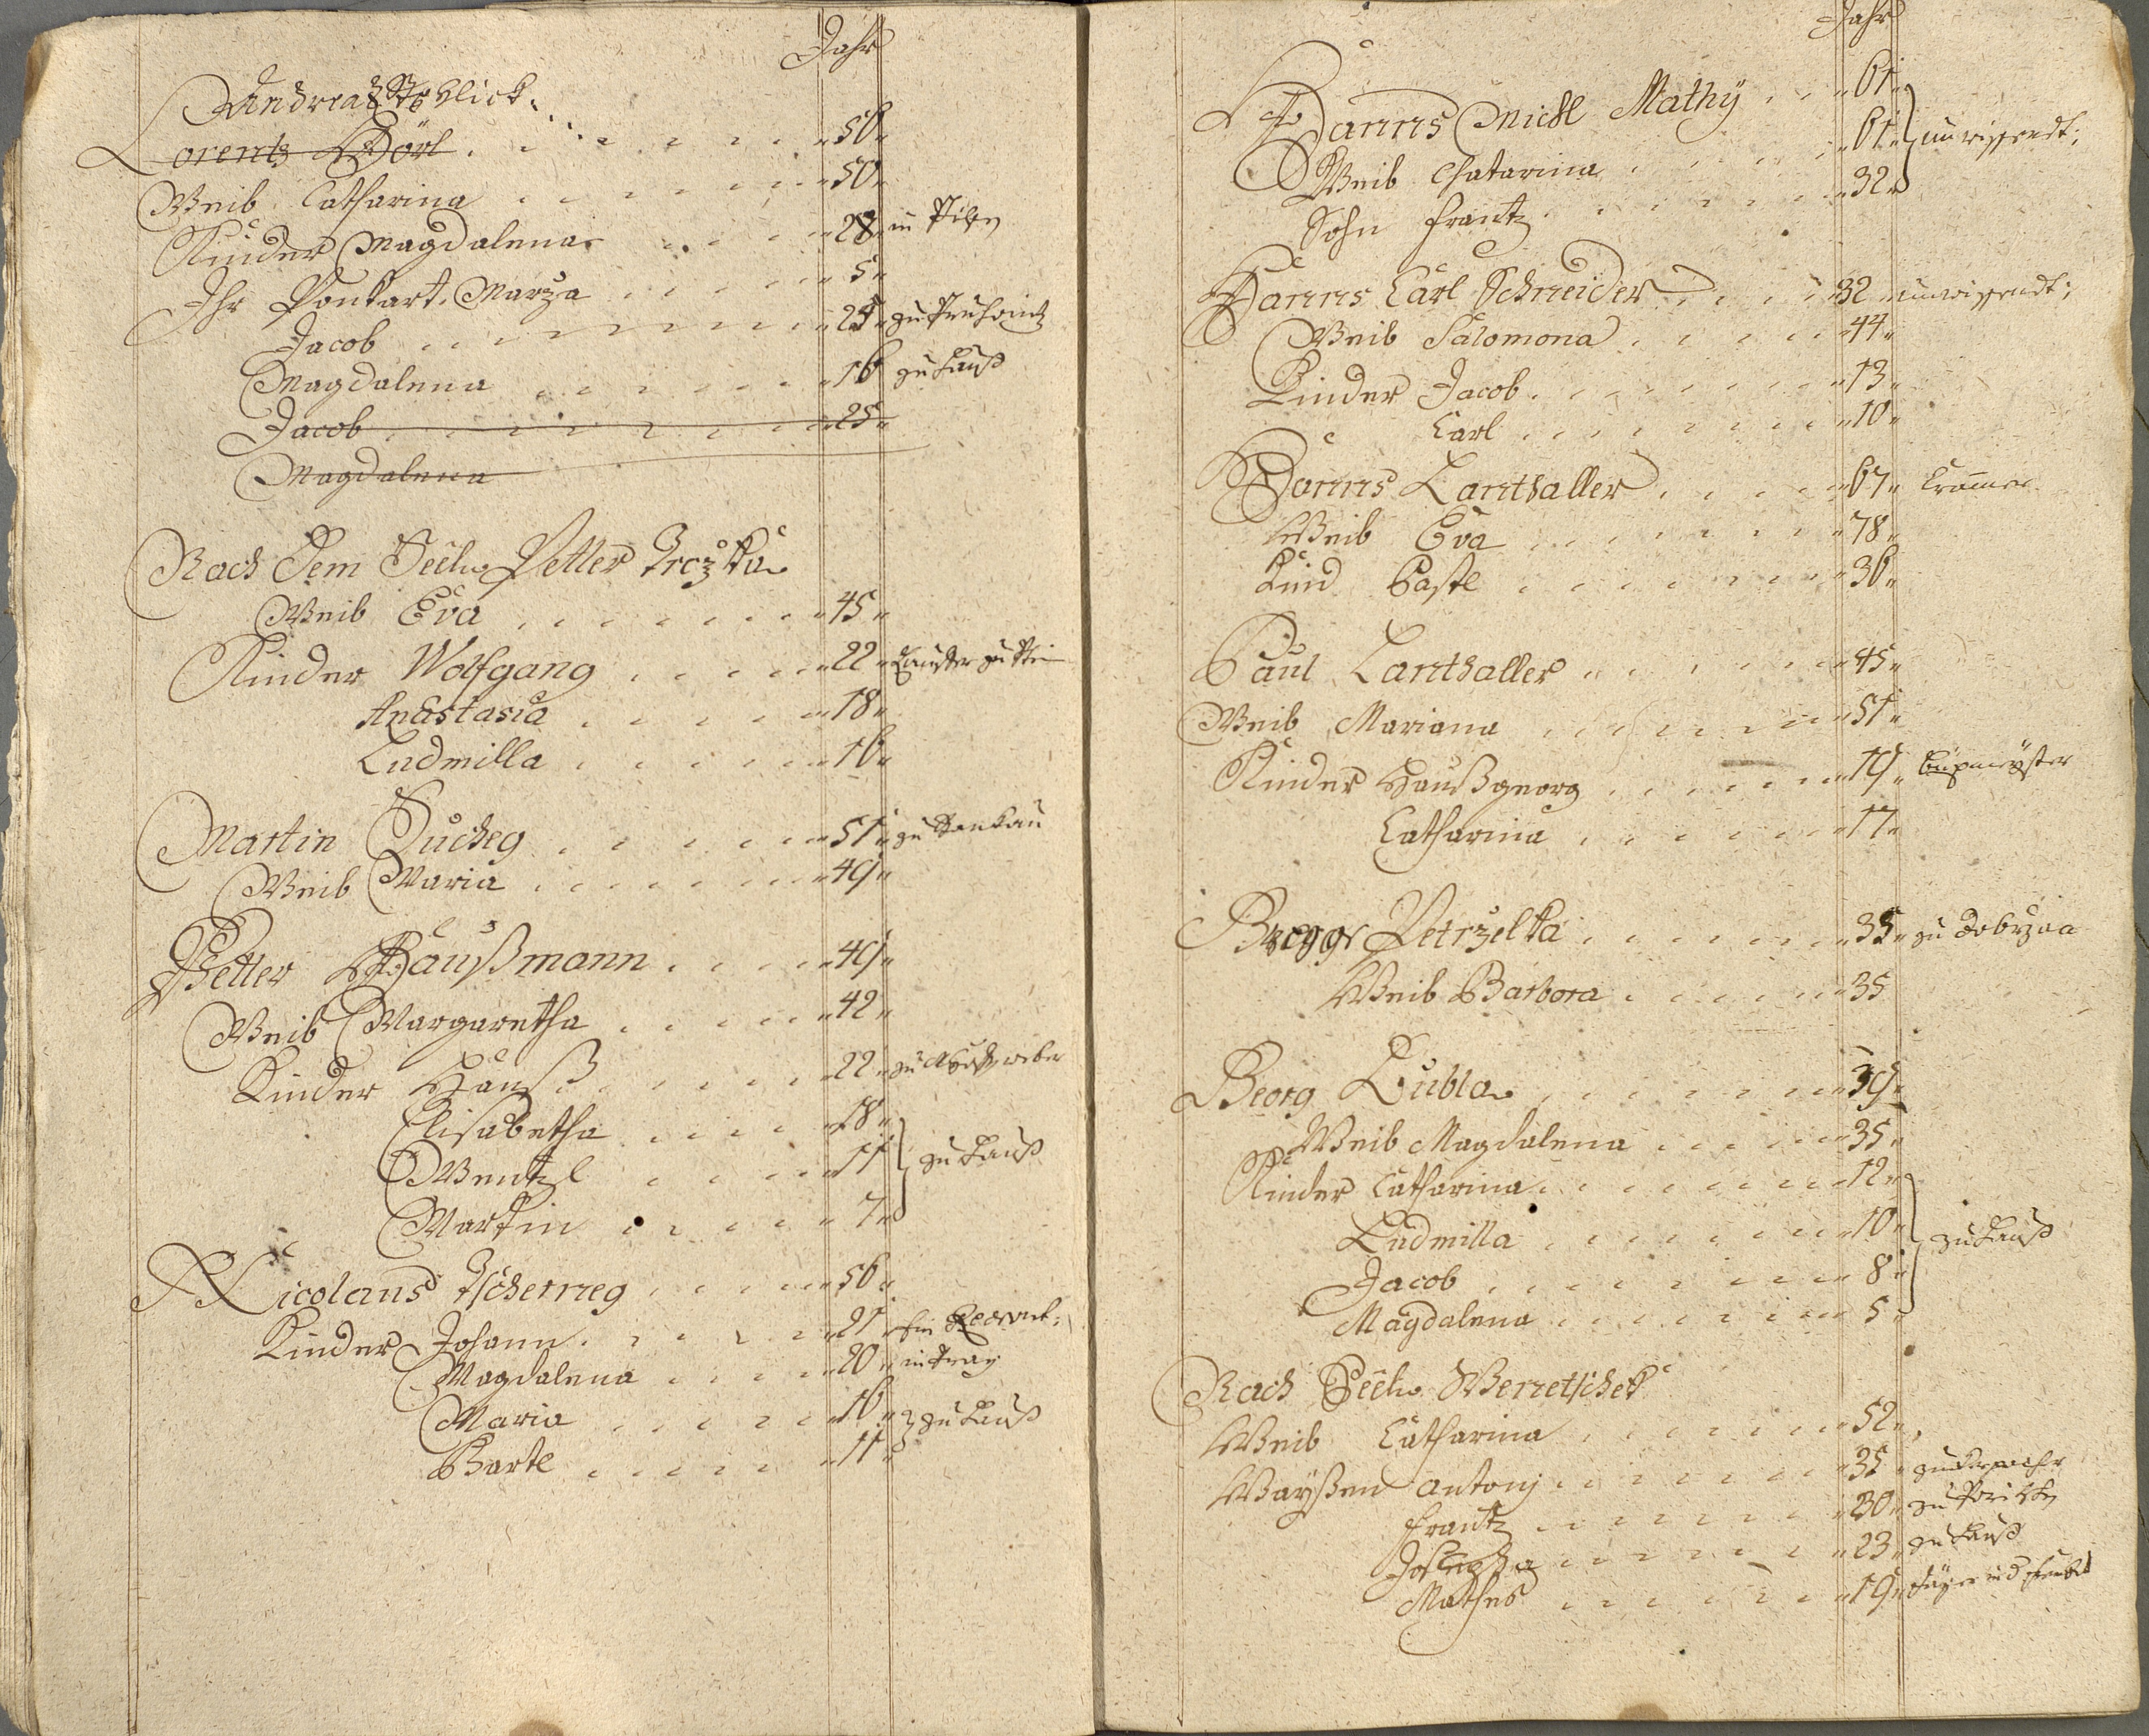 Jahr
Andreaß Stoblick
Lorentz Hörl 56
Weib Catharina 50
Kinder Magdalena 28 in Pilsen
Ihr Pankart. Marza 5
Jacob 25
Magdalena 16 zu Hauß
Jacob 25
Magdalena
Nach Dem Seel. Petter
Weib Eva 45
Kinder Wolfgang 22
Anastasia 18
Ludmilla 16
Martin Sucheg 51
Weib Maria 49
Petter Haußmann 49
Weib Margaretha 42
Kinder Hanß 22
Elisabetha 18
Wentzl 11 zu Hauß
Martin 7
Nicolaus Tscherneg 56
Kinder Johann 21 Ein
Magdalena 20 in Prag
Maria 16 zu Hauß
Bartl 11
Jahr
Hanns Michl Mathÿ 61
Weib Chatarina 61 unwissendt;
Sohn Frantz 32
Hanns Carl Schneider 32 unwissendt;
Weib Salomona 44
Kinder Jacob 13
Carl 10
Hanns Lanthaller 67
Weib Eva 78
Kind Bastl 36
Paul Lanthaller 45
Weib Mariana 51
Kinder Hanßgeorg 19
Catharina 17
Petrzelka 35 zu Dobrzan
Weib Barbora 35
Georg Kubla 39
Weib Magdalena 35
Kinder Catharina 12
Ludmilla 10 zu Hauß
Jacob 8
Magdalena 5
Nach Seel. Werretschek
Weib Catharina 52
Waÿßen Antonj 35
Frantz 30
23 zu Hauß
Mathes 19